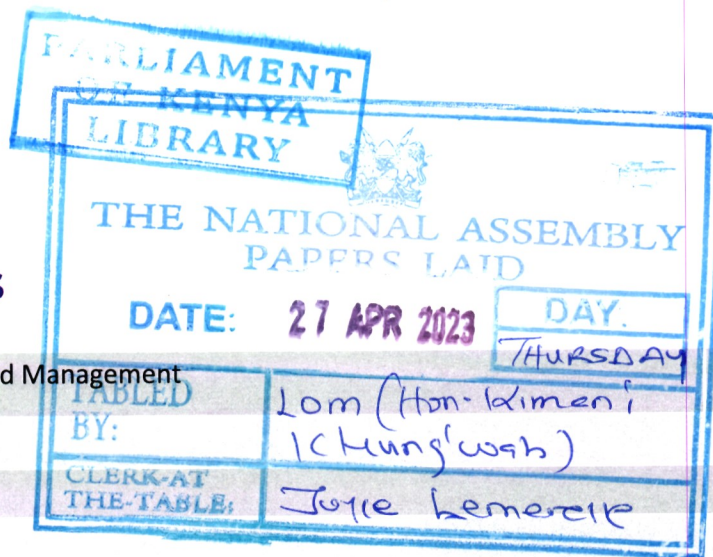 PARLIAMENT
OF KENYA
LIBRARY
THE NATIONAL ASSEMBLY
PAPERS LAID
DATE: 27 APR 2023
DAY.
THURSDAY
S
d Management
TABLED
BY:
Lom (Hon. Kimani
Ichung'wah)
CLERK-AT
THE-TABLE: